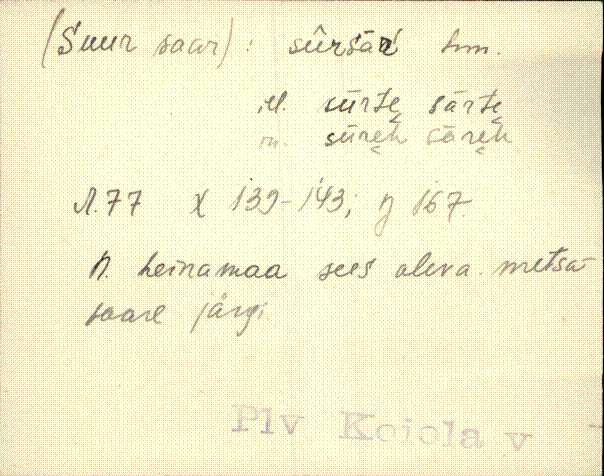 (Suur saar): sûrsār hm.
ill. sūrtę sārtę
in. sūręh sāręh
A.77 X 139-143; y 167.
N. heinamaa sees oleva metsa-
saare järgi.
Plv Kojola v